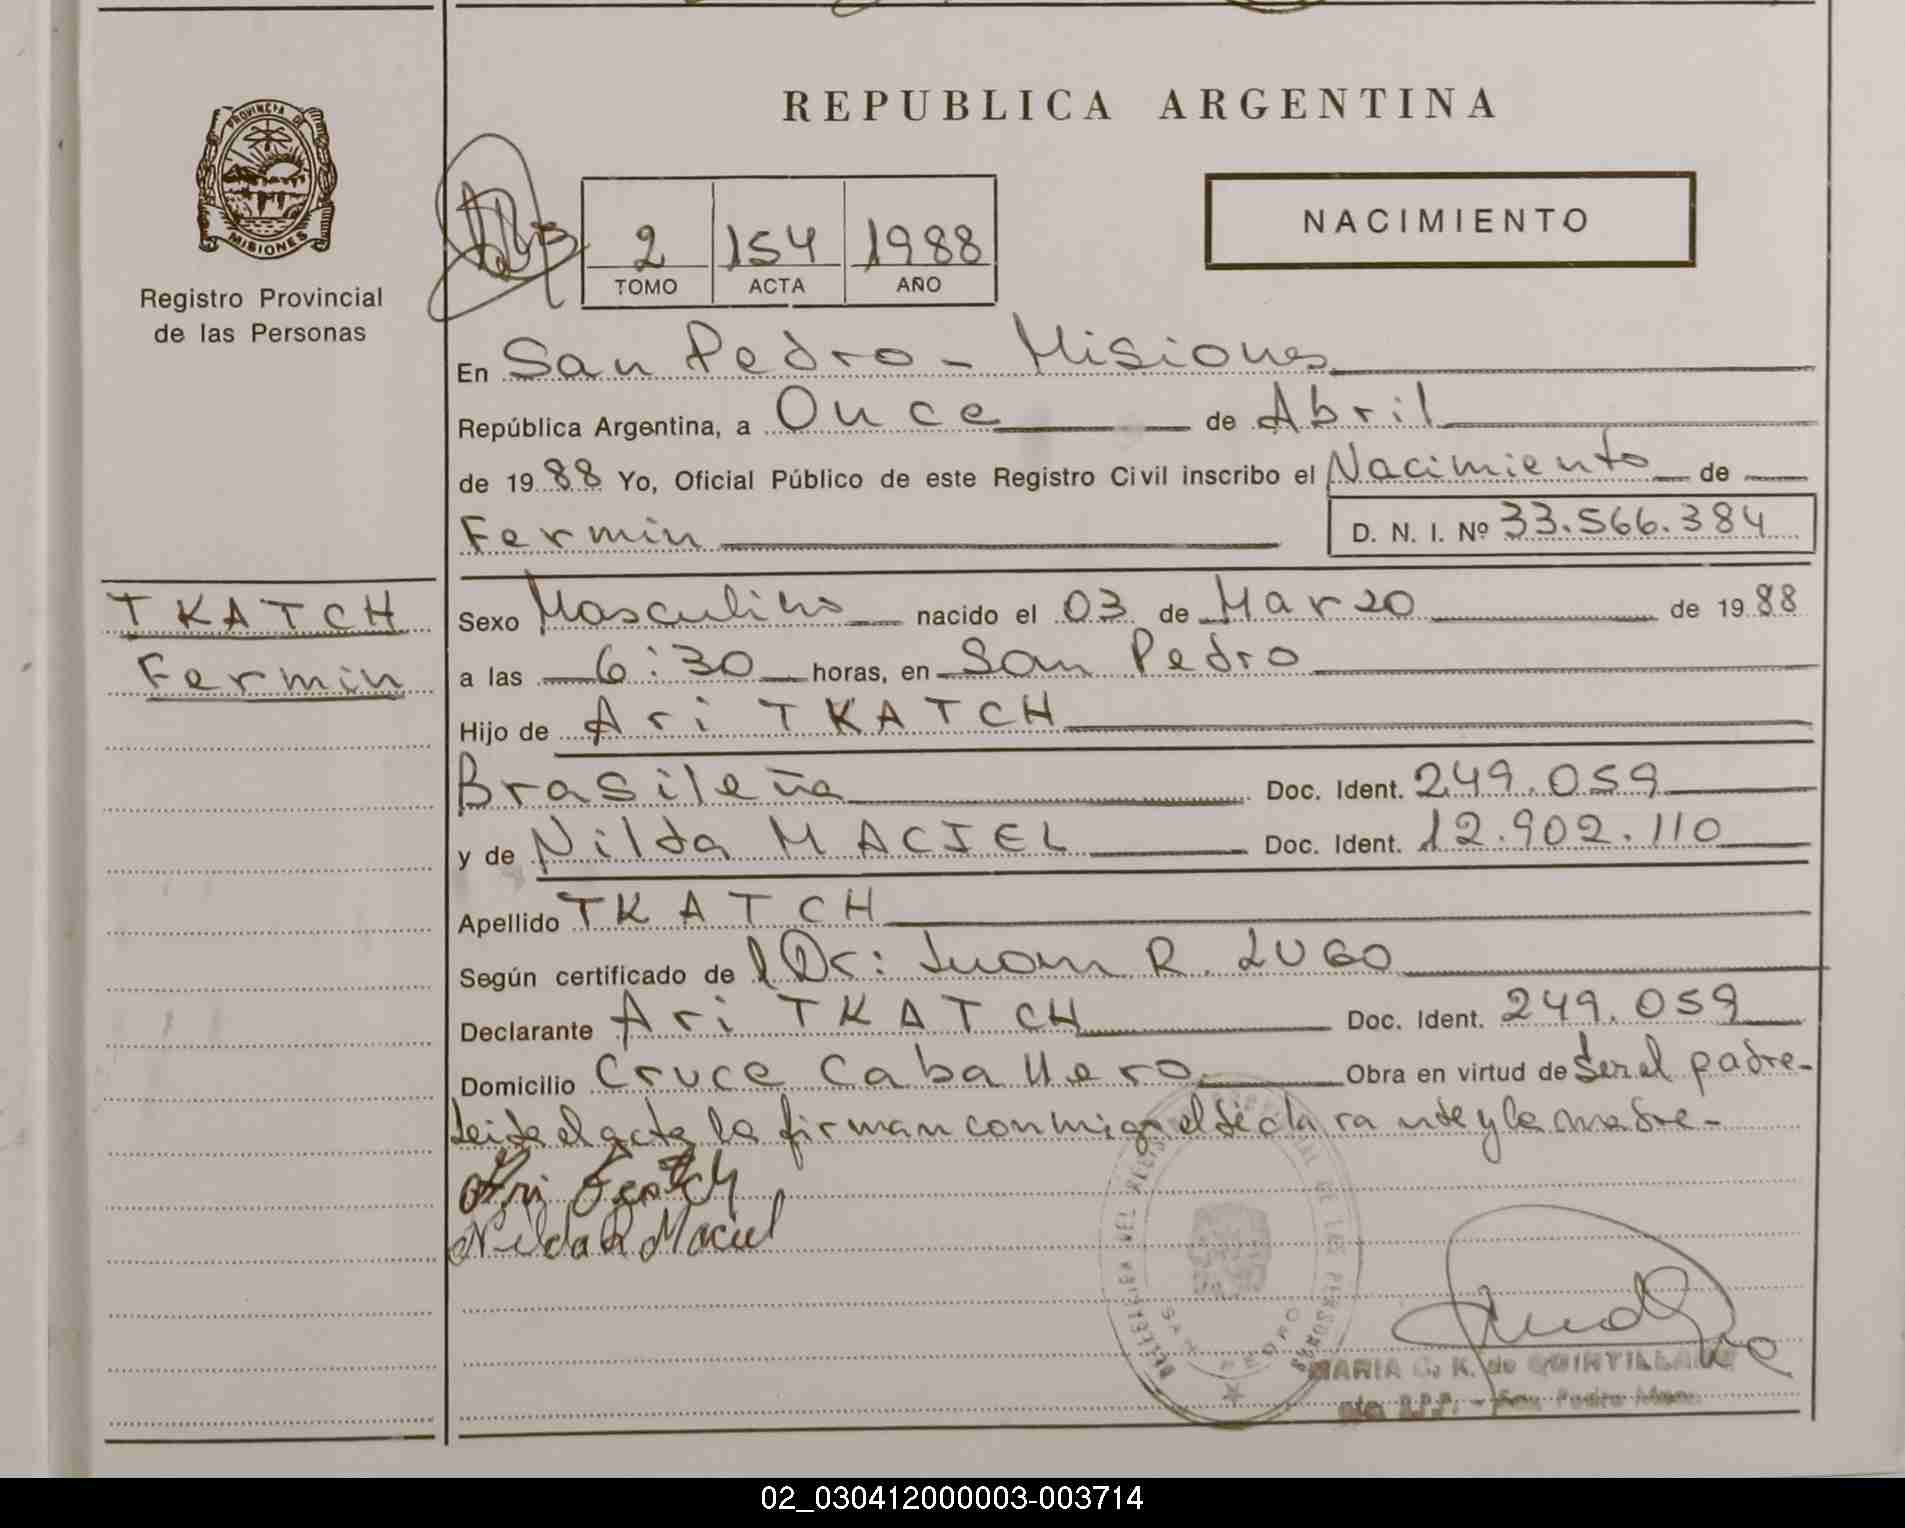 PROVINCIA DE
MISIONES
Registro Provincial
de las Personas
REPUBLICA ARGENTINA
2 154 1988
TOMO ACTA AÑO
NACIMIENTO
En San Pedro - Misiones
República Argentina, a Once de Abril
de 1988 Yo, Oficial Público de este Registro Civil inscribo el Nacimiento de
Fermin D. N. I. Nº 33.566.384
TKATCH
Fermin
Sexo Masculino nacido el 03 de Marzo de 1988
a las 6:30 horas, en San Pedro
Hijo de Ari TKATCH
Brasileña Doc. Ident. 249.059
y de Nilda MACIEL Doc. Ident. 12.902.110
Apellido TKATCH
Según certificado de Dr: Juan R. LUGO
Declarante Ari TKATCH Doc. Ident. 249.059
Domicilio Cruce Caballero Obra en virtud de Ser el padre-
Leida el acta la firman conmigo el declarante y la madre-
Ari
Nilda R Maciel
SAN PEDRO
MARIA C. K. de QUINTILLANE
R.P.P. - San Pedro Mnes.
02_030412000003-003714